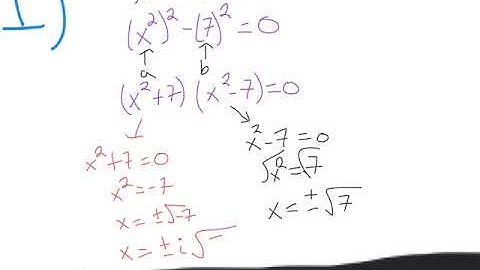 1)
(x²)² - (7)² = 0
a b
(x² + 7) (x² - 7) = 0
x² + 7 = 0
x² = -7
x = ±√-7
x = ± i √
x² - 7 = 0
√x² = √7
x = ±√7